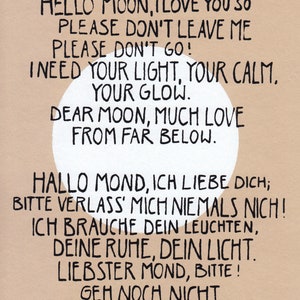 HELLO MOON, I LOVE YOU SO
PLEASE DON'T LEAVE ME
PLEASE DON'T GO!
I NEED YOUR LIGHT, YOUR CALM,
YOUR GLOW.
DEAR MOON, MUCH LOVE
FROM FAR BELOW.
HALLO MOND, ICH LIEBE DICH;
BITTE VERLASS' MICH NIEMALS NICH!
ICH BRAUCHE DEIN LEUCHTEN,
DEINE RUHE, DEIN LICHT.
LIEBSTER MOND, BITTE!
GEH NOCH NICHT.